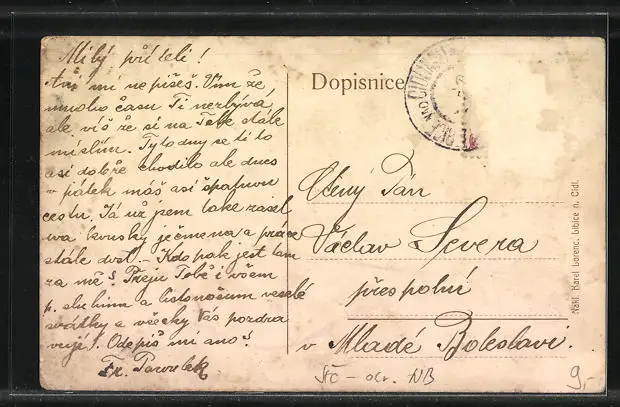 Milý příteli!
Ani mi nepíšeš. Vím že,
mnoho času Ti nezbývá,
ale víš že si na Tebe stále
myslím. Tyto dny se ti to
asi dobře chodilo ale dnes
v pátek máš asi špatnou
cestu. Já už jsem také zasel
dva kousky ječmena a práce
stále dost. - Kdo pak jest tam
za mě? Přeju Tobě i všem
p. sluhům a listonošům veselé
svátky a všecky Vás pozdra
vuji! Odepiš mi ano!
Fr. Pavoulek
Dopisnice
Ctěný Pán
Václav Severa
přespolní
v Mladé Boleslavi.
Nákl. Karel Lorenc, Libice n. Cidl.
StČ - okr. NB
9,-